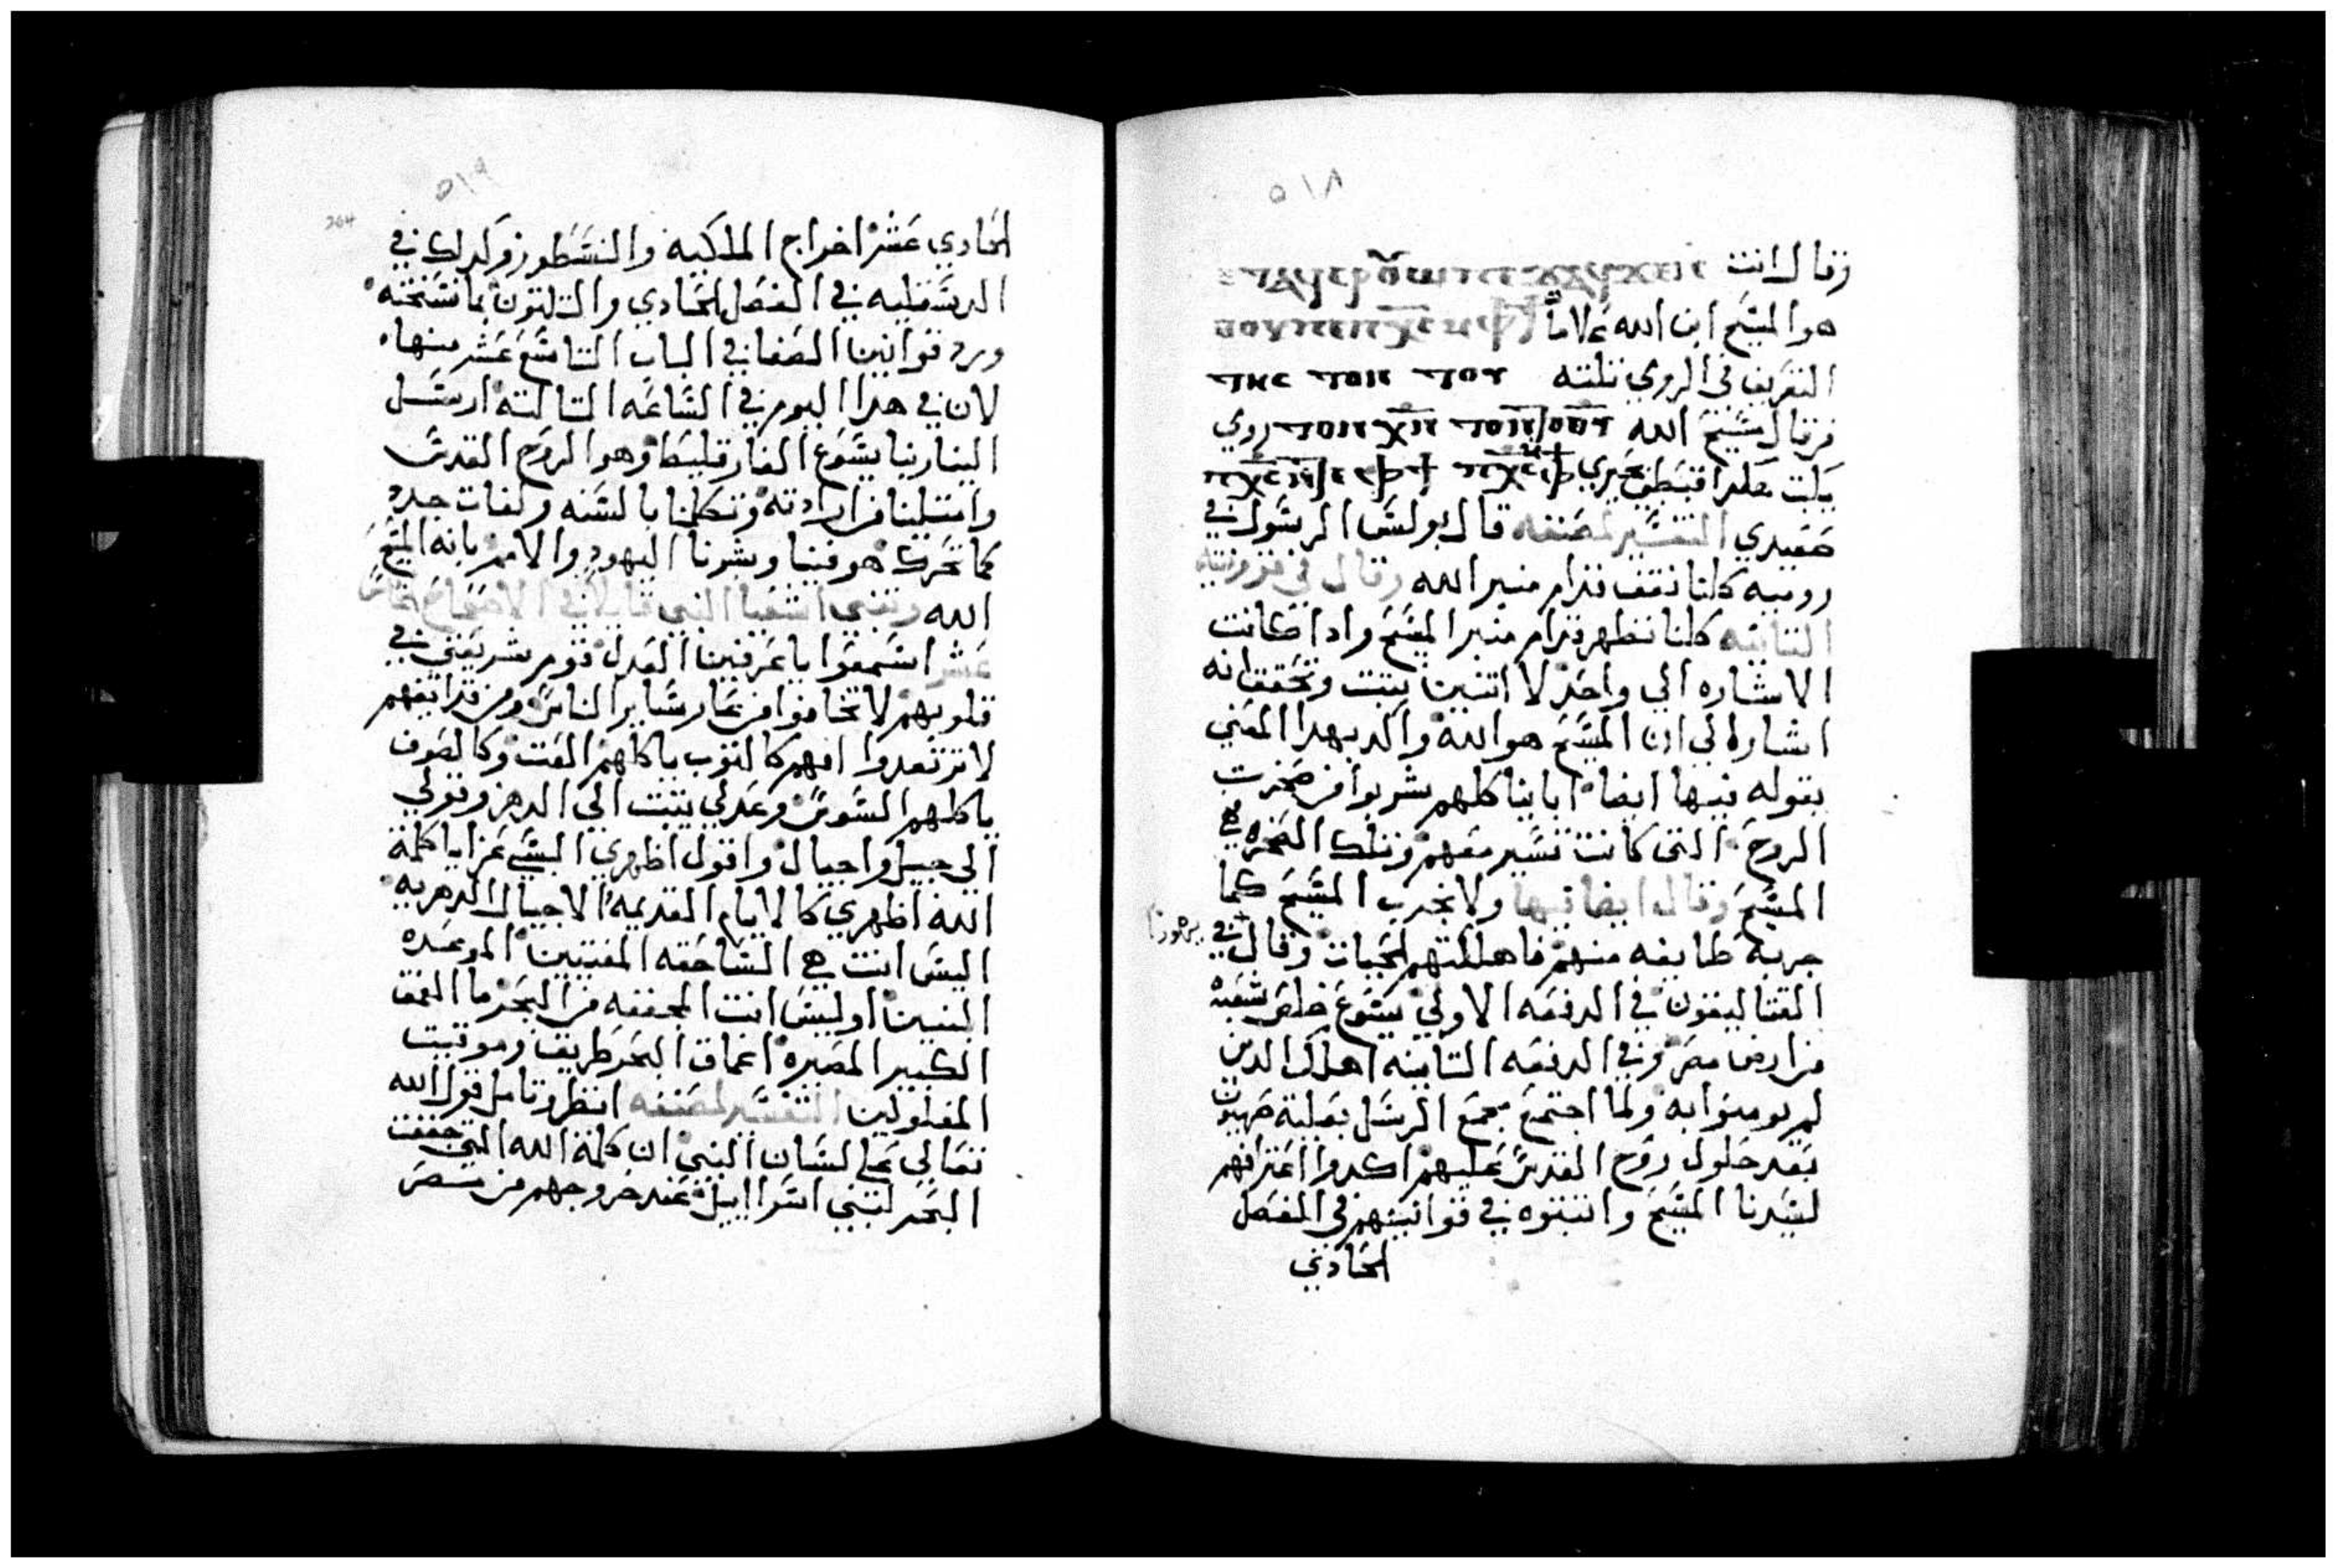 ٥١٨
وقال انت
هو المسيح ابن الله علاما
التعريف في الرومي تلته
فرقال مسيح الله رومي
بحيري
صعيدي التفسير لمصنفه قال بولس الرسول في
روميه كلنا نقف قدام منبر الله وقال في
التانيه كلنا نظهر قدام منبر المسيح وادا كانت
الاشاره الي واحد لا اتنين يتبت وتحقق انه
اشاره لي ان المسيح هو الله واكد بهدا المعني
بقوله فيها ايضا ابانا كلهم شربوا من صخرت
الروح التي كانت تسير معهم وتلك الصخره هي
المسيح وقال ايضا فيها ولا نجرب المسيح كما
جربه طايفه منهم فاهلكتهم الحيات وقال في يهودا
القتاليقون في الدفعه الاولي يسوع خلص شعبه
من ارض مصر وفي الدفعه التانيه اهلك الدين
لم يومنوا به ولما اجتمع مجمع الرسل بعلية صهيون
بعد حلول روح القدس عليهم اكدوا اعترافهم
لسيدنا المسيح واتبتوه في قوانينهم في الفصل
الحادي
٥١٩
264
الحادي عشر اخراج الملكيه والنسطور وكدلك في
الدسقليه في الفصل الحادي والتلتون بما نسخته
ورد قوانين الصفا في الباب التاسع عشر منها
لان في هدا اليوم في الساعه التالته ارسل
الينا ربنا يسوع الفارقليط وهو الروح القدس
وامتلينا من ارادته وتكلمنا بالسنه ولغات جدد
كما تحرك هو فينا وبشرنا اليهود والامم بانه المسيح
الله وتنبي اشعيا النبي قايلا في الاصحاح الخامس
عشر اسمعوا يا عارفين العدل قوم شريعتي في
قلوبهم لا تخافوا من عار ساير الناس ومن قدايفهم
لا ترتعدوا انهم كالتوب ياكلهم العت وكالصوف
ياكلهم السوس وعدلي يتبت الي الدهر وقولي
الي جيل واجيال واقول اظهري البسي عزا يا كلمة
الله اظهري كالايام القديمه الاجيال الدهريه
اليس انت هي الساحقه المفتيين الموعده
التنين اوليس انت المجففه من البحر ما العمق
الكبير المصيره اعماق البحر طريق وموقيت
المفلولين التفسير لمصنفه انظر وتامل قول الله
تعالي علي لسان النبي ان كلمة الله التي جففت
البحر لبني اسراييل عند خروجهم من مصر